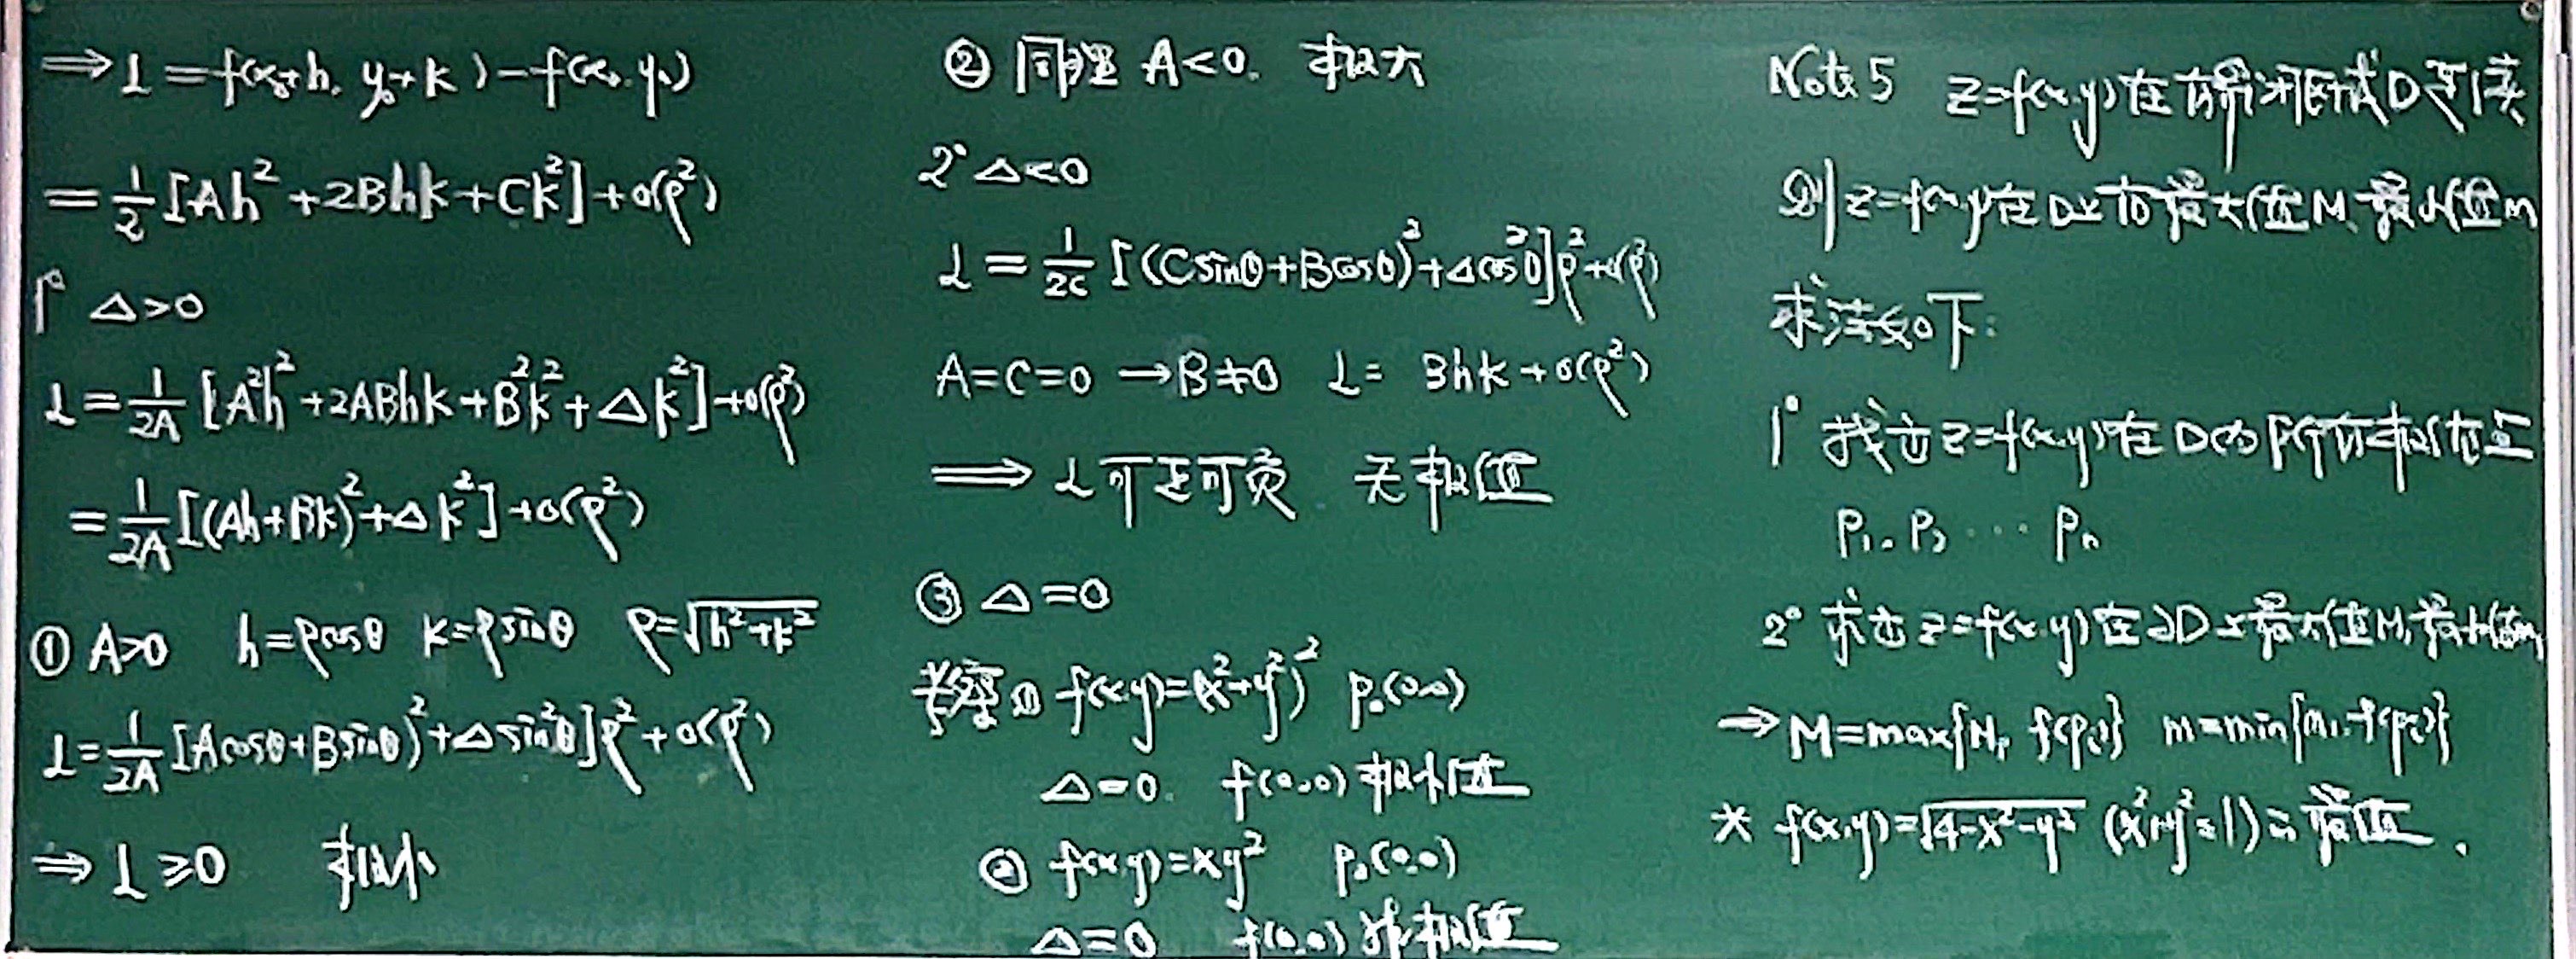 ⇒ L = f(x₀+h, y₀+k) − f(x₀, y₀)
= 1/2 [Ah² + 2Bhk + Ck²] + o(ρ²)
1° Δ>0
L = 1/2A [A²h² + 2ABhk + B²k² + Δk²] + o(ρ²)
= 1/2A [(Ah+Bk)² + Δk²] + o(ρ²)
① A>0 h=ρcosθ k=ρsinθ ρ=√(h²+k²)
L = 1/2A [Acosθ+Bsinθ)² + Δsin²θ]ρ² + o(ρ²)
⇒ L ≥ 0 极小
② 同理 A<0. 极大
2° Δ<0
L = 1/2C [(Csinθ+Bcosθ)² + Δcos²θ]ρ² + o(ρ²)
A=C=0 → B≠0 L = Bhk + o(ρ²)
⇒ L可正可负 无极值
③ Δ=0
考虑 ① f(x,y)=(x²+y²)² P₀(0,0)
Δ=0. f(0,0) 极小值
② f(x,y)=xy² P₀(0,0)
Δ=0 f(0,0) 非极值
Note 5 z=f(x,y)在有界闭区域D连续
则z=f(x,y)在D上有最大值M、最小值m
求法如下:
1° 找出z=f(x,y)在D的所有极值
P₁, P₂ ⋯ Pₙ
2° 求出z=f(x,y)在∂D上最大值M₁最小值m₁
⇒ M=max{M₁, f(pᵢ)} m=min{m₁, f(pᵢ)}
* f(x,y)=√(4−x²−y²) (x²+y²≤1) 最值.